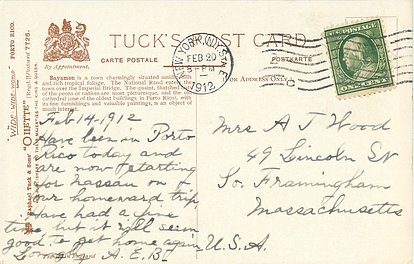 TUCK'S POST CARD
CARTE POSTALE
POSTKARTE
By Appointment.
(FOR ADDRESS ONLY.)
"WIDE-WIDE-WORLD" PORTO RICO.
Raphael Tuck & Sons' "OILETTE"
Postcard 7725.
NEW YORK, N.Y. STA. E
FEB 20
5-PM
1912
Bayamon is a town charmingly situated amid hills
and rich tropical foliage. The National Road enters the
town over the Imperial Bridge. The quaint, thatched huts
of the peons or natives are most picturesque, and the
cathedral (one of the oldest buildings in Porto Rico), with
its fine furnishings and valuable paintings, is an object of
much interest.
Feb 14-1912
Have been in Porto
Rico today and
are now starting
for Nassau on
our homeward trip
Have had a fine
time, but it'll seem
good to get home again
A. E. B.
Mrs A J Wood
49 Lincoln St
So. Framingham
Massachusetts
U.S.A.